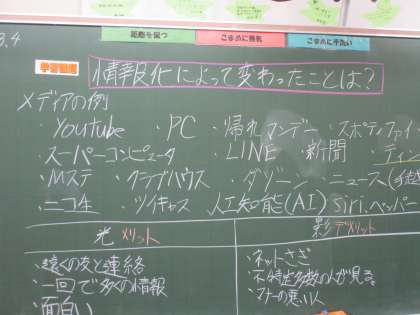 3.4
距離を保つ
こまめに換気
こまめに手洗い
学習課題
情報化によって変わったことは?
メディアの例
・Youtube ・PC ・帰れマンデー ・スポティファイ
・スーパーコンピュータ ・LINE ・新聞
・Mステ ・クラブハウス ・ダゾーン ・ニュース
・ニコ生 ・ツイキャス 人工知能(AI) Siri.ペッパー
光 メリット
影 デメリット
・遠くの友と連絡
・一回で多くの情報
・面白い
・ネットさぎ
・不特定多数の人が見る。
・マナーの悪い人